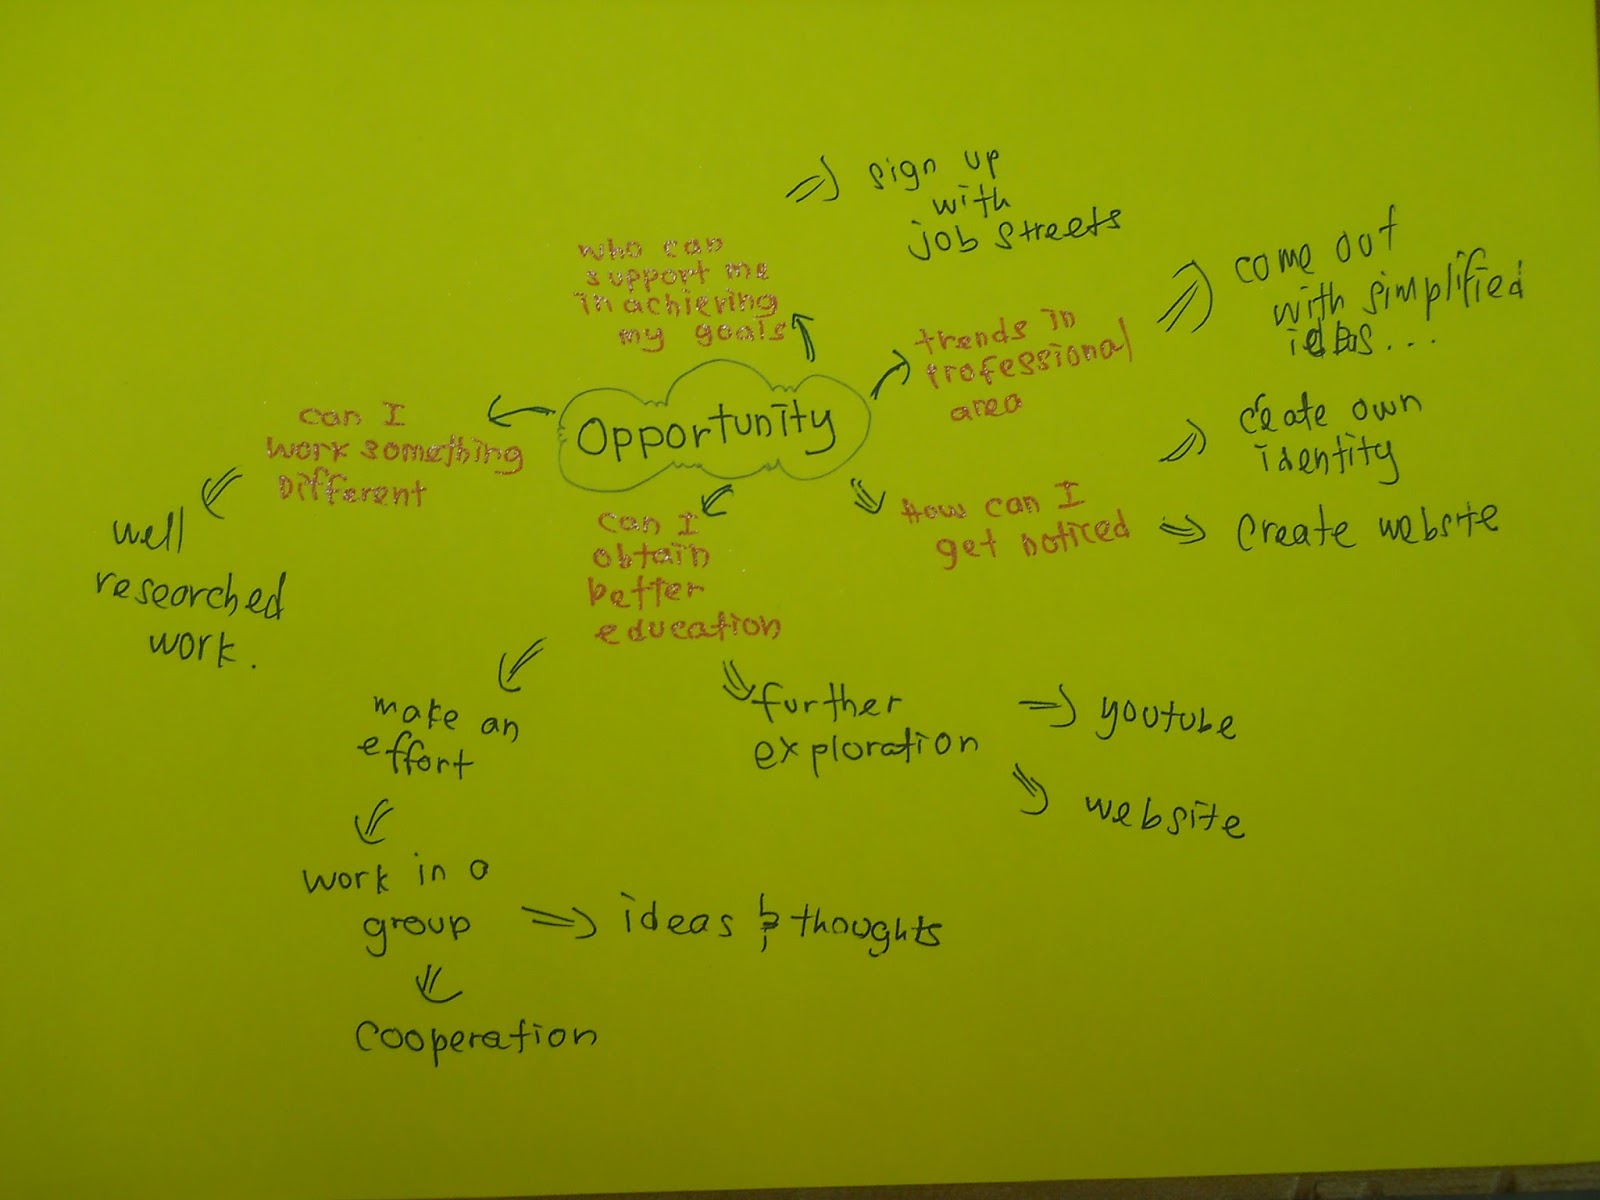 Opportunity
who can
support me
in achieving
my goals
sign up
with
job streets
trends in
professional
area
come out
with simplified
ideas...
How can I
get noticed
create own
identity
create website
can I
obtain
better
education
further
exploration
youtube
website
make an
effort
work in a
group
ideas & thoughts
cooperation
can I
work something
Different
well
researched
work.